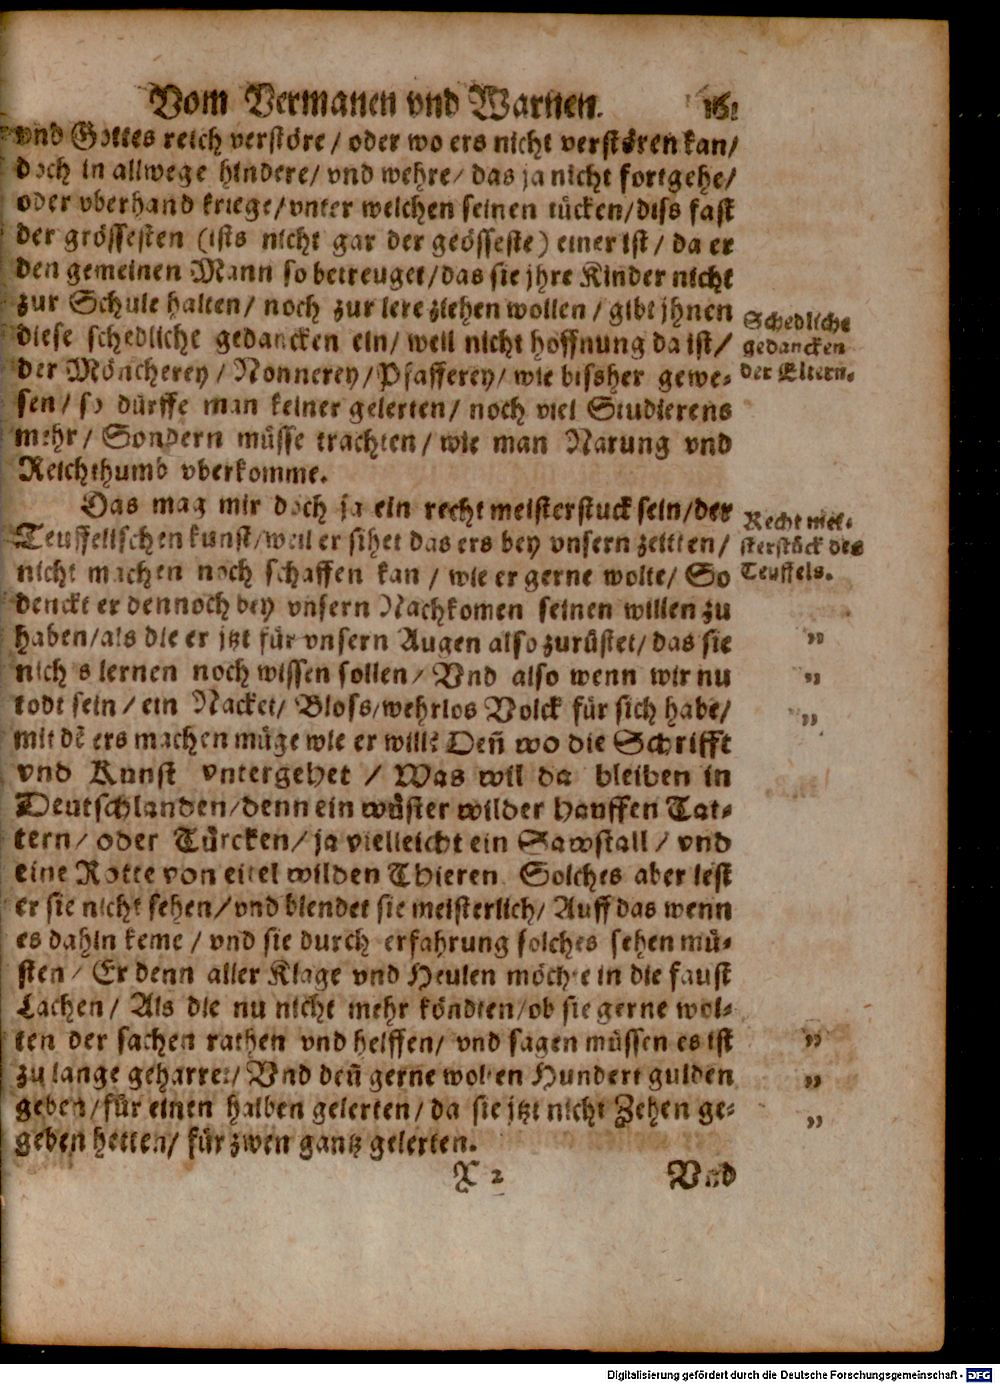 Vom Vermanen vnd Warnen. 161
vnd Gottes reich verstöre / oder wo ers nicht verstören kan/
doch in allwege hindere/ vnd wehre/ das ja nicht fortgehe/
oder vberhand kriege/vnter welchen seinen tücken/diss fast
der grössesten (ists nicht gar der geösseste) einer ist / da er
den gemeinen Mann so betreuget/das sie jhre Kinder nicht
zur Schule halten/ noch zur lere ziehen wollen / gibt jhnen
diese schedliche gedancken ein/ weil nicht hoffnung da ist/
der Möncherey / Nonnerey/Pfafferey/ wie bissher gewe-
sen/ so dürffe man keiner gelerten/ noch viel Studierens
mehr/ Sondern müsse trachten/ wie man Narung vnd
Reichthumb vberkomme.
Schedliche
gedancken
der Eltern.
Das mag mir doch ja ein recht meisterstuck sein/der
Teuffelischen kunst/weil er sihet das ers bey vnsern zeitten/
nicht machen noch schaffen kan / wie er gerne wolte/ So
denckt er dennoch bey vnsern Nachkomen seinen willen zu
haben/als die er jtzt für vnsern Augen also zurüstet/das sie
nichts lernen noch wissen sollen/ Vnd also wenn wir nu
todt sein/ ein Nacket/ Bloss/wehrlos Volck für sich habe/
mit dē ers machen müge wie er will? Deñ wo die Schrifft
vnd Kunst vntergehet / Was wil da bleiben in
Deutschlanden/denn ein wüster wilder hauffen Tat-
tern/ oder Türcken/ ja vielleicht ein Sawstall / vnd
eine Rotte von eitel wilden Thieren. Solches aber lest
er sie nicht sehen/vnd blendet sie meisterlich/ Auff das wenn
es dahin keme / vnd sie durch erfahrung solches sehen mü-
sten / Er denn aller Klage vnd Heulen möchte in die faust
Lachen/ Als die nu nicht mehr köndten/ob sie gerne wol-
ten der sachen rathen vnd helffen/ vnd sagen müssen es ist
zu lange geharret/ Vnd deñ gerne wolten Hundert gulden
geben/für einen halben gelerten/ da sie jtzt nicht Zehen ge-
geben hetten/ für zwen gantz gelerten.
Recht mei-
sterstück des
Teuffels.
"
"
"
"
"
"
X 2 Vnd
Digitalisierung gefördert durch die Deutsche Forschungsgemeinschaft - DFG